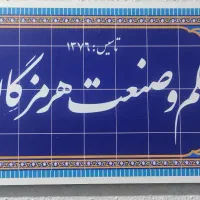 تاسیس: ۱۳۷۶
علم و صنعت هرمزگان